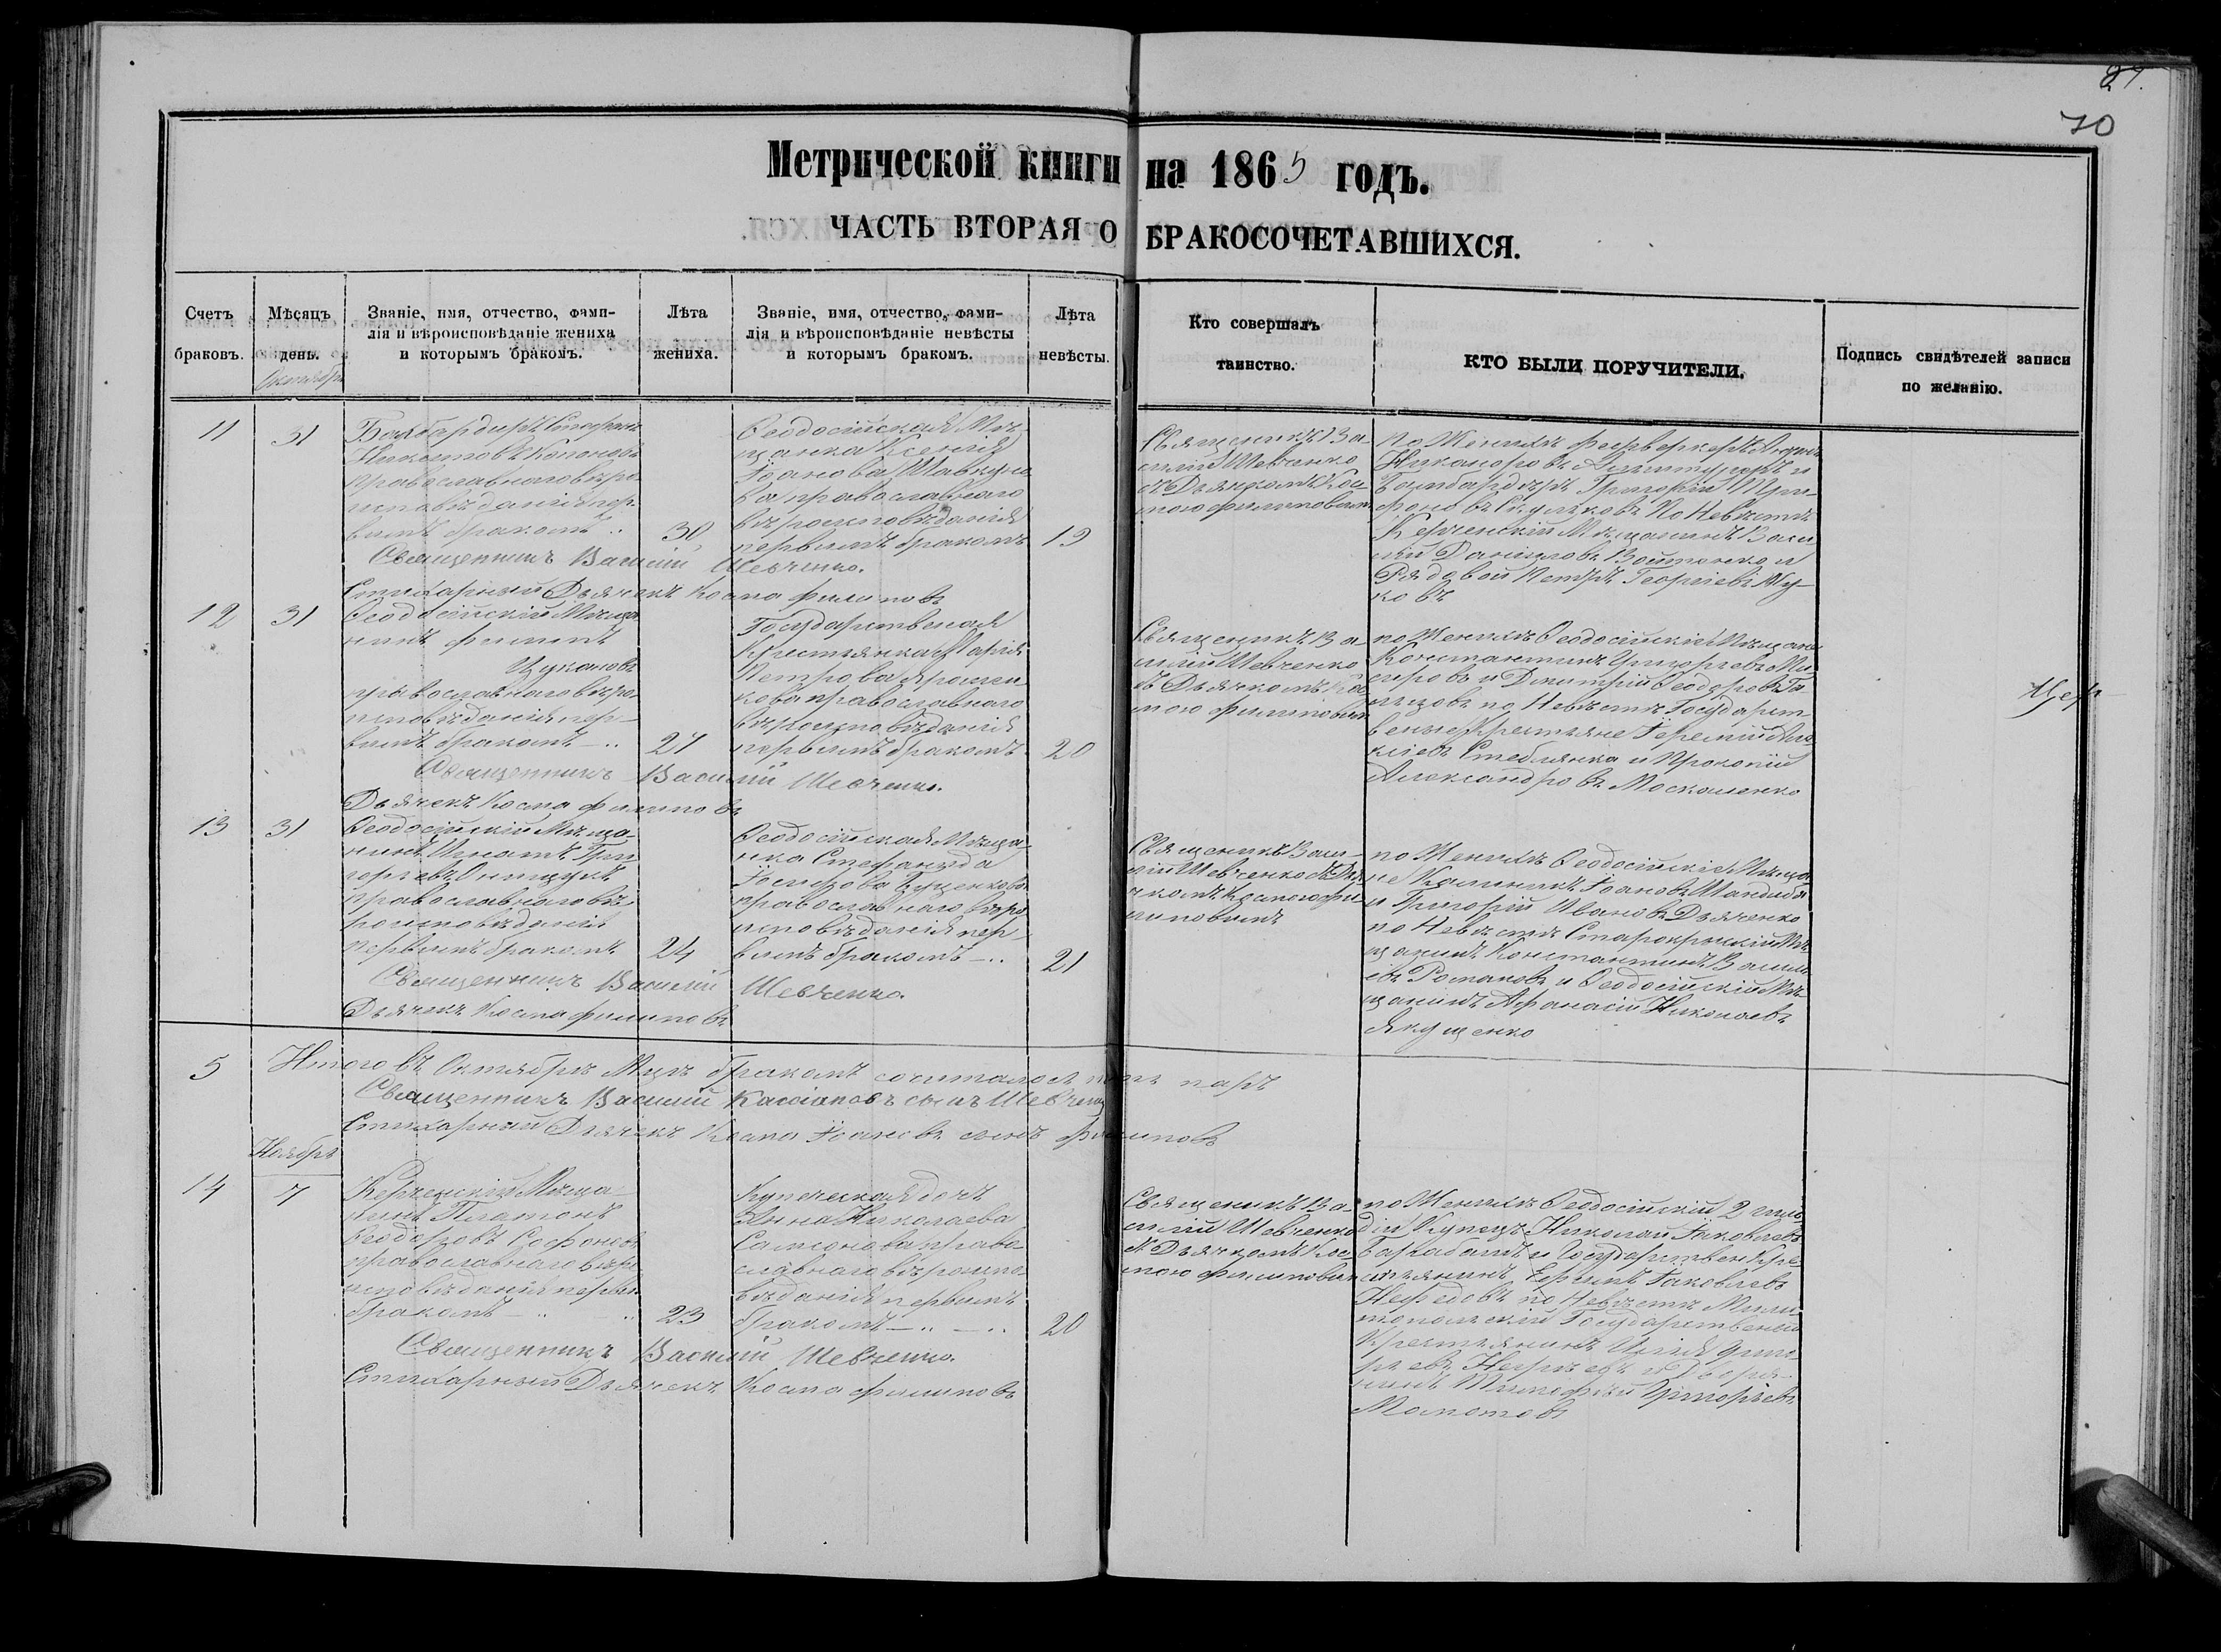 27.
70
Метрической книги на 1865 годъ.
ЧАСТЬ ВТОРАЯ О БРАКОСОЧЕТАВШИХСЯ.
Счетъ браковъ.
Мѣсяцъ день.
Званіе, имя, отчество, фами-
лія и вѣроисповѣданіе жениха
и которымъ бракомъ.
Лѣта жениха.
Званіе, имя, отчество, фами-
лія и вѣроисповѣданіе невѣсты
и которымъ бракомъ.
Лѣта невѣсты.
Кто совершалъ
таинство.
КТО БЫЛИ ПОРУЧИТЕЛИ.
Подпись свидѣтелей записи
по желанію.
Октябрь
11
31
Бомбардиръ
православнаго вѣро
исповѣданія пер-
вымъ бракомъ
30
Ѳеодосійская Мѣ-
щанка Ксенія
Іоанова
ва православнаго
вѣроисповѣданія
первымъ бракомъ
19
Священникъ Ва-
силій Шевченко
съ Дьячкомъ Кос-
мою Филиповымъ
по Женихѣ
Никаноровъ и
Бомбардиръ Григорій
По Невѣстѣ
Керченскій Мѣщанинъ Васи
лій Даниловъ Войтенко и
Рядовой Петръ Георгіевъ Жу-
ковъ
Священникъ Василій Шевченко.
Стихарный Дьячекъ Косма Филиповъ
12
31
Ѳеодосійскій Мѣща
нинъ Филипъ
Цукановъ
православнаго вѣро
исповѣданія пер-
вымъ бракомъ
27
Государственая
Крестьянка Марія
Петрова
кова православнаго
вѣроисповѣданія
первымъ бракомъ
20
Священникъ Ва-
силій Шевченко
съ Дьячкомъ Кос
мою Филиповым
по Женихѣ Ѳеодосійскіе Мѣщане
Константинъ Григорьевъ
и Дмитрій Ѳеодоровъ
по Невѣстѣ Государст-
веные Крестьяне Іеремій
Стеблянка и Прокопій
Александровъ Москаленко
Цер
Священникъ Василій Шевченко.
Дьячекъ Косма Филиповъ
13
31
Ѳеодосійскій Мѣща-
нинъ Игнатъ Гри
горьевъ Онищукъ
православнаго вѣ-
роисповѣданія
первымъ бракомъ
24
Ѳеодосійская Мѣща-
нка Стефанида
Іосифова Буценкова
православнаго вѣро
исповѣданія пер-
вымъ бракомъ
21
Священикъ Васи-
лій Шевченко съ Дья
чкомъ Космою Фи
липовымъ
по Женихѣ Ѳеодосійскіе Мѣща
не Калиникъ Іоановъ
и Григорій Ивановъ Дьяченко
по Невѣстѣ Старокрымскій Мѣ
щанинъ Константинъ Василь
евъ Романовъ и Ѳеодосійскій Мѣ-
щанинъ Афанасій Николаевъ
Якущенко
Священникъ Василій Шевченко.
Дьячекъ Косма Филиповъ
5
Итого въ Октябрѣ Мцѣ бракомъ сочеталося пять паръ
Священникъ Василій Кассіановъ сынъ Шевченко
Стихарный Дьячекъ Косма Іоановъ сынъ Филиповъ
Ноябрь
14
7
Керченскій Мѣща-
нинъ Платонъ
Ѳеодоровъ Софоновъ
православнаго вѣро
исповѣданія первым
бракомъ
23
Купеческая дочь
Анна Николаева
Самсонова право-
славнаго вѣроиспо
вѣданія первымъ
бракомъ
20
Священикъ Ва-
силій Шевченко
съ Дьячкомъ Кос
мою Филиповым
по Женихѣ Ѳеодосійскій 2 гиль
діи Купецъ Николай Іаковлевъ
и Государствен Кре
стьянинъ Ефимъ Іаковлевъ
Нефедовъ по Невѣстѣ Мели
топольскій Государственый
Крестьянинъ Илія
и Дворя-
нинъ Тимофей Григорьевъ
Момотовъ
Священникъ Василій Шевченко.
Стихарный Дьячекъ Косма Филиповъ